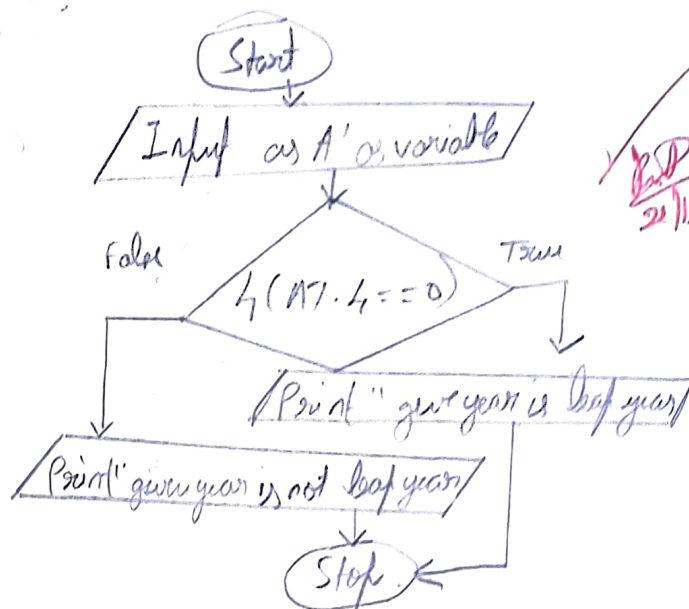 Start
Input as A' as variable
False
True
if (A%4==0)
Print" give year is leap year
Print" given year is not leap year
Stop
21/1